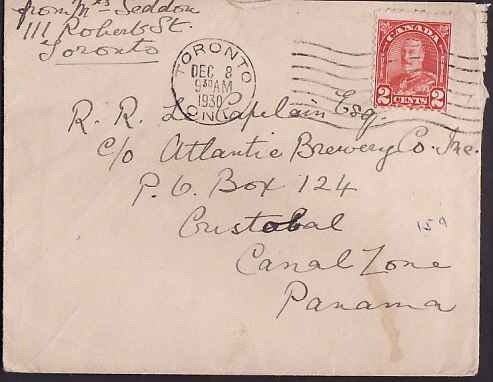 from Mrs Seddon
111 Roberts St.
Toronto
TORONTO
DEC 8
9 30 AM
1930
ONT.
CANADA
2 CENTS 2
R. R. Le Caplain Esq.
c/o Atlantic Brewery Co. Inc.
P. O. Box 124
Cristobal
Canal Zone
Panama